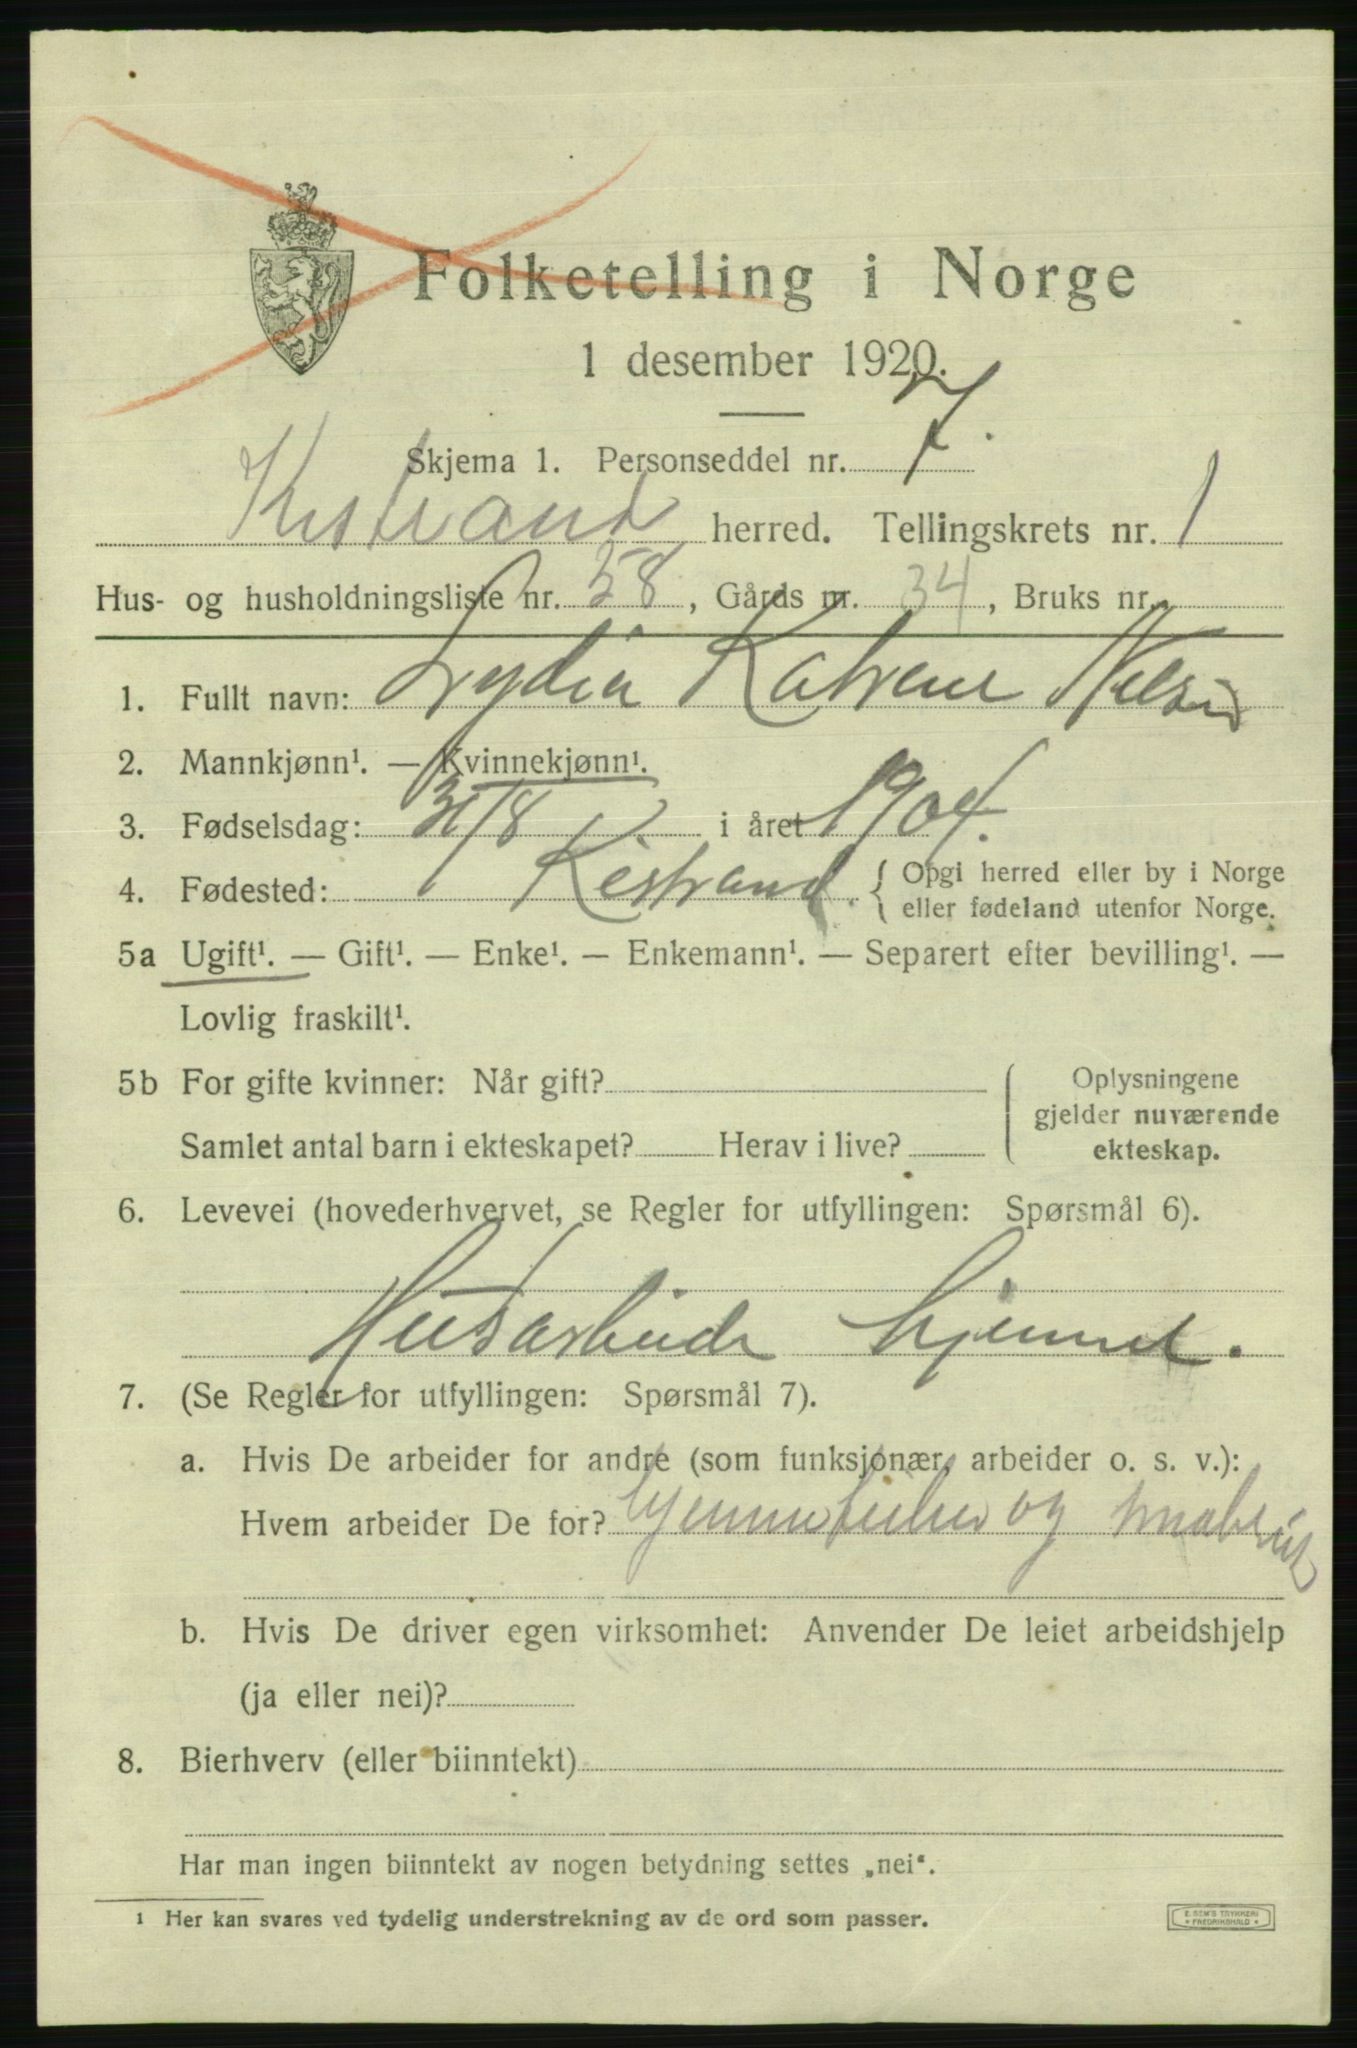 Folketelling i Norge
1 desember 1920.
Skjema 1. Personseddel nr. 7.
Kistrand herred. Tellingskrets nr. 1
Hus- og husholdningsliste nr. 58, Gårds nr. 34, Bruks nr.
1. Fullt navn: Lydia Katrene Nilsen
2. Mannkjønn¹. — Kvinnekjønn¹.
3. Fødselsdag: 31/8 i året 1904.
4. Fødested: Kistrand. { Opgi herred eller by i Norge
eller fødeland utenfor Norge.
5a Ugift¹. — Gift¹. — Enke¹. — Enkemann¹. — Separert efter bevilling¹. —
Lovlig fraskilt¹.
5b For gifte kvinner: Når gift?
Samlet antal barn i ekteskapet? Herav i live?
Oplysningene
gjelder nuværende
ekteskap.
6. Levevei (hovederhvervet, se Regler for utfyllingen: Spørsmål 6).
Husarbeide hjemmet.
7. (Se Regler for utfyllingen: Spørsmål 7).
a. Hvis De arbeider for andre (som funksjonær, arbeider o. s. v.):
Hvem arbeider De for? og småbruk
b. Hvis De driver egen virksomhet: Anvender De leiet arbeidshjelp
(ja eller nei)?
8. Bierhverv (eller biinntekt)
Har man ingen biinntekt av nogen betydning settes „nei“.
¹ Her kan svares ved tydelig understrekning av de ord som passer.
E. SEM'S TRYKKERI
FREDRIKSHALD